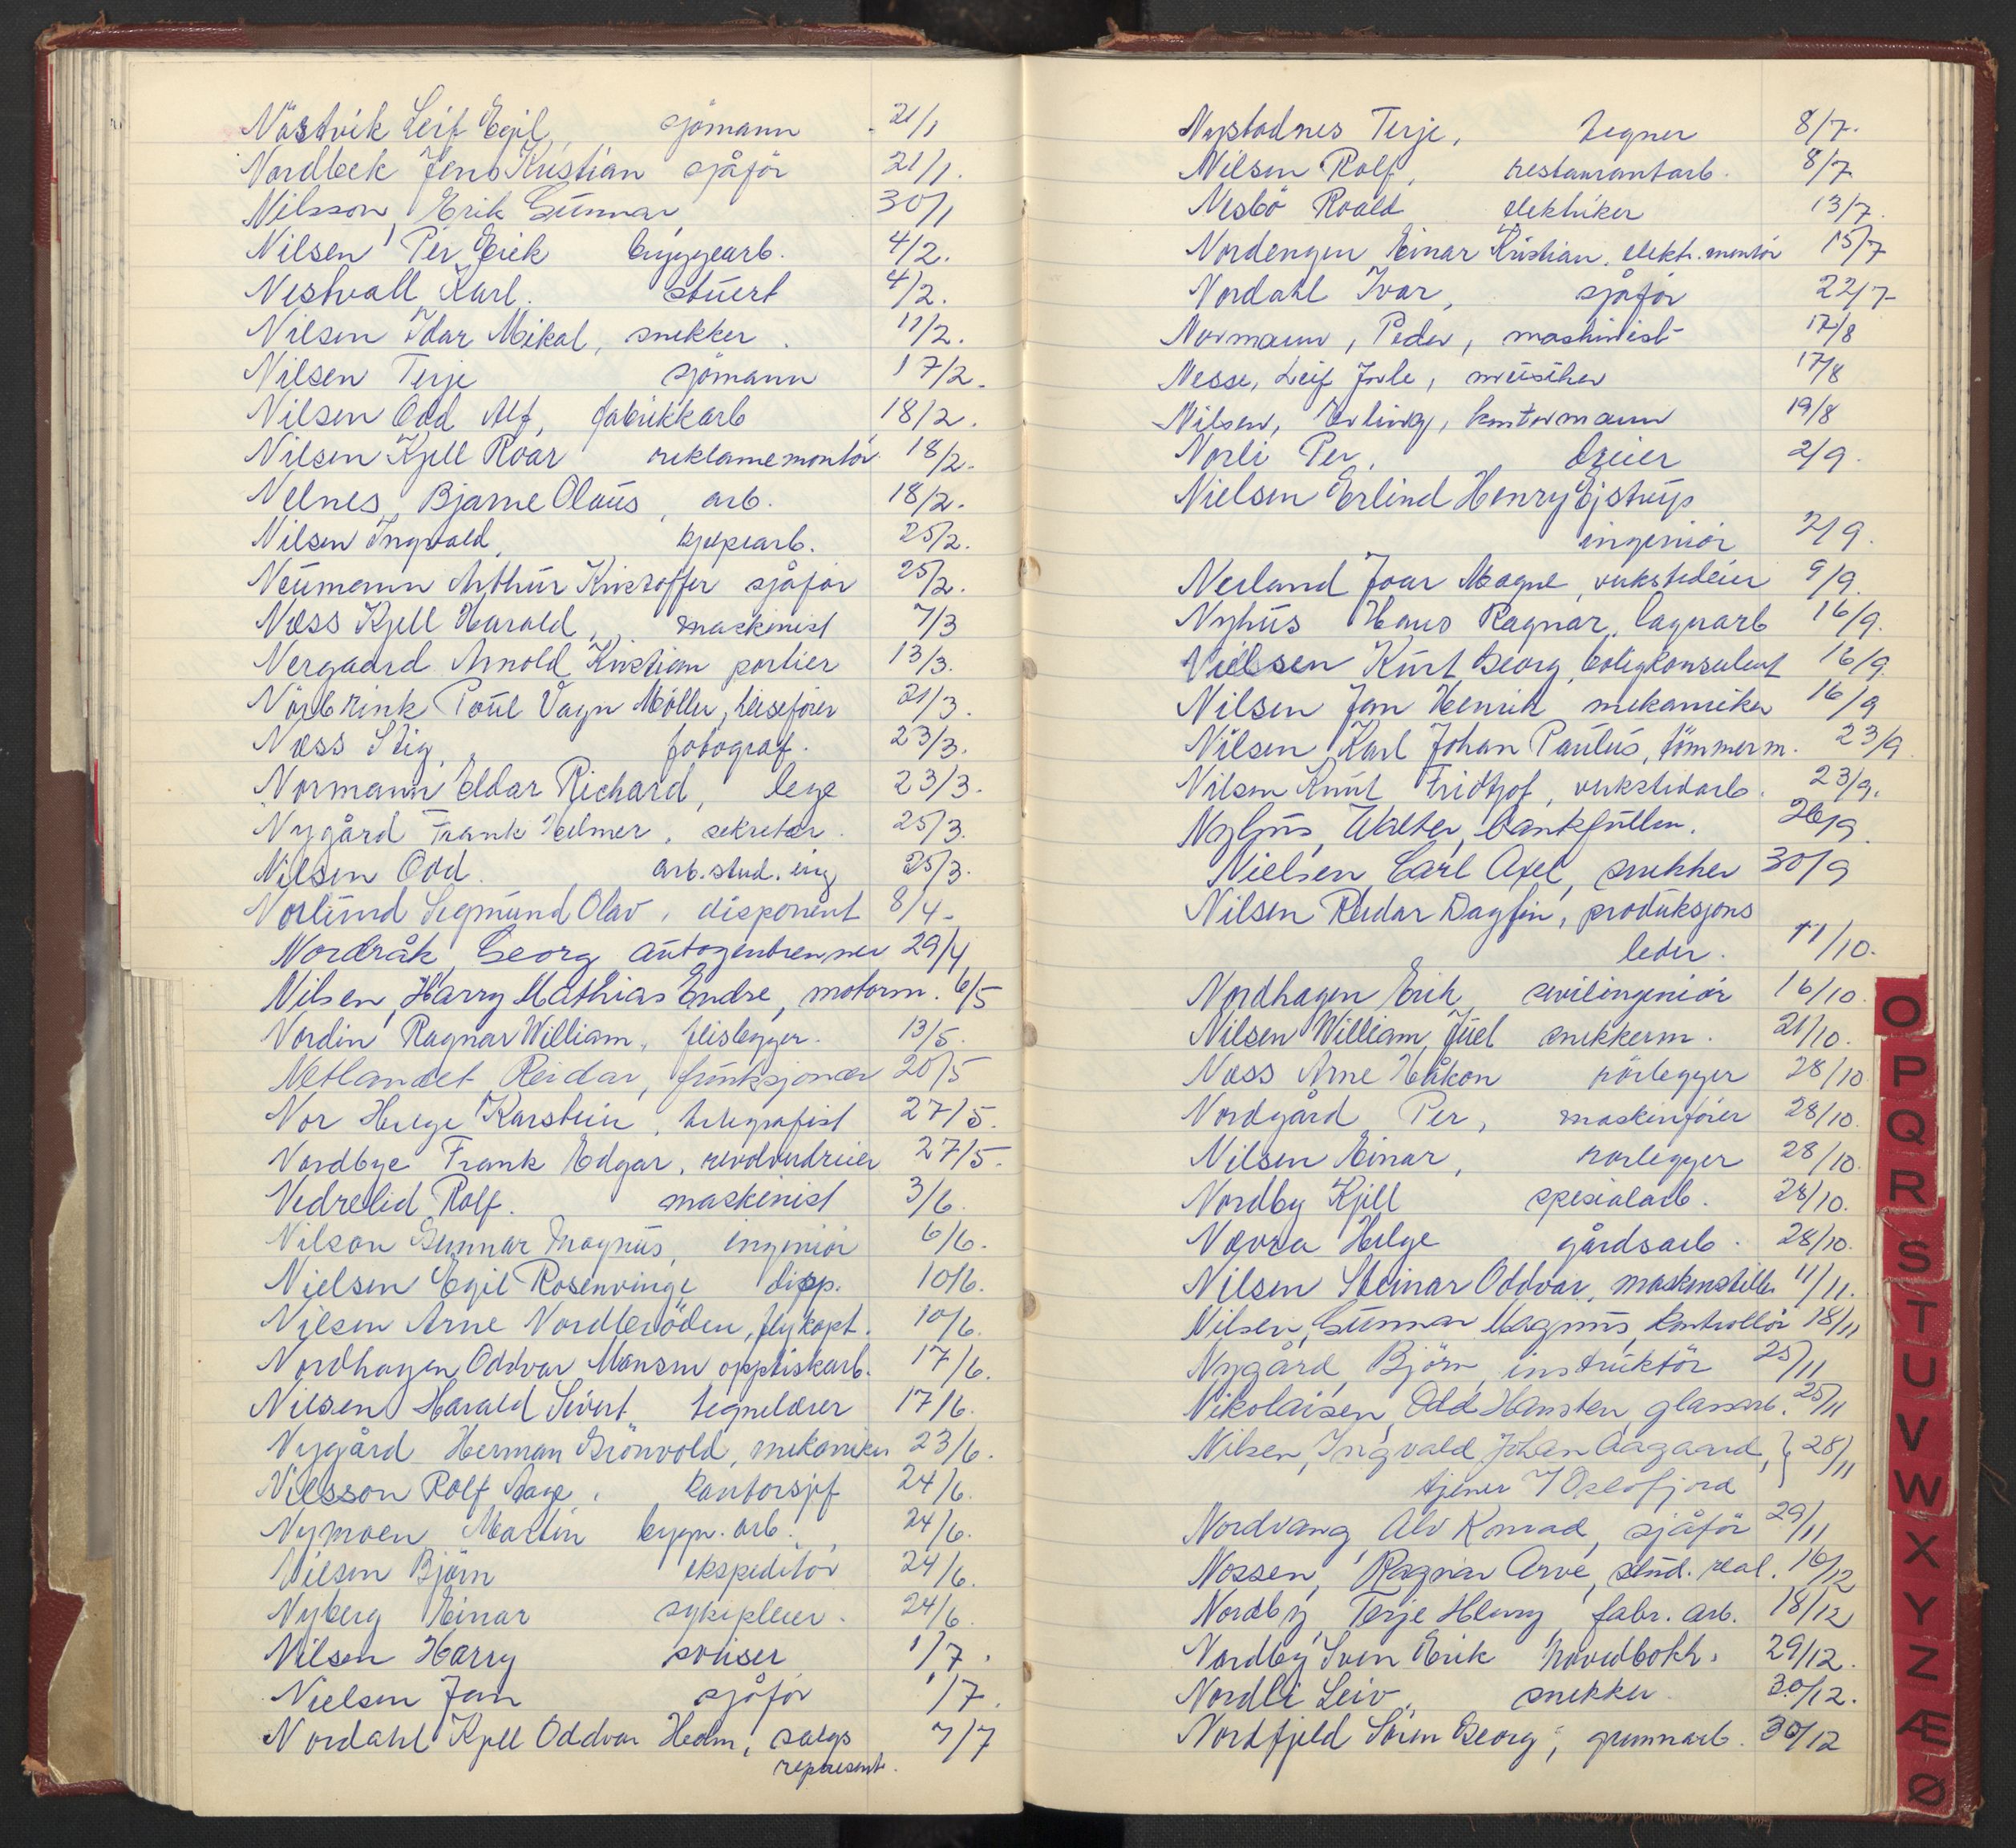 Nåstvik Leif Egil, sjömann 21/1
Nordbeck Jens Kristian sjåför 21/1.
Nilsson, Erik Gunnar 30/1
Nilsen Per Erik byggearb. 4/2.
Nestvall Karl. stuert 4/2.
Nilsen Idar Mikal, snekker. 11/2.
Nilsen Terje sjömann 17/2.
Nilsen Odd Alf, fabrikkarb 18/2.
Nilsen Kjell Roar reklamemontör 18/2.
Nelnes, Bjarne Olaus, arb. 18/2.
Nilsen Ingvald, hjelpearb. 25/2.
Neumann Arthur Kristoffer sjåför 25/2.
Næss Kjell Harald, maskinist 7/3
Nergaard Arnold Kristian portier 13/3.
Nörbrink Poul Vagn Möller, heiseförer 21/3.
Næss Stig, fotograf. 23/3.
Normann Eldar Richard, lege 23/3.
Nygård Frank Helmer, sekretær. 25/3.
Nilsen Odd. arb.stud.ing 25/3.
Norlund Sigmund Olav, disponent 8/4.
Nordråk Georg autogenbrenner 29/4
Nilsen, Harry Mathias Endre, motorm. 6/5
Nordin Ragnar William, flislegger. 13/5.
Netlandet Reidar, funksjonær 20/5
Nor Helge Karstein, telegrafist 27/5.
Nordbye Frank Edgar, revolverdreier 27/5.
Nedrelid Rolf. maskinist 3/6.
Nilson Gunnar Magnus, ingeniör 6/6.
Nielsen Egil Rosenvinge disp. 10/6.
Nilsen Arne Nordbröden, flykapt. 10/6.
Nordhagen Oddvar Monsen opptiskarb. 17/6.
Nilsen Harald Sivert tegnelærer 17/6.
Nygård Herman Grönvold, mekaniker 23/6.
Nilsson Rolf Aage, kontorsjef 24/6.
Nymoen Martin bygn. arb. 24/6.
Nilsen Björn ekspeditör 24/6.
Nyberg Einar sykepleier. 24/6.
Nilsen Harry sveiser 1/7.
Nielsen Jan sjåför 1/7.
Nordahl Kjell Oddvar Holm, salgs 7/7
represent.
Nystadnes Terje, tegner 8/7.
Nilsen Rolf, restaurantarb. 8/7
Nesbö Roald elektriker 13/7.
Nordengen Einar Kristian, elektr.montör 15/7
Nordahl Ivar, sjåför 22/7
Normann, Peder, maskinist 17/8
Nesse, Leif Jarle, musiker 17/8
Nilsen, Erling, kontormann 19/8
Norli Per, dreier 2/9.
Nielsen Erlind Henry Ejstrup
ingeniör 2/9.
Nerland Joar Magne, verkstedeier 9/9.
Nyhus Hans Ragnar, lagerarb 16/9.
Nielsen Kurt Georg, boligkonsulent 16/9.
Nilsen Jan Henrik mekaniker 16/9
Nilsen Karl Johan Paulus, tömmerm. 23/9
Nilsen Knut Fridtjof, verkstedarb. 23/9.
Nyhus, Walter, bankfullm. 26/9.
Nielsen Carl Axel, snekker 30/9
Nilsen Reidar Dagfin, produksjons
leder. 11/10.
Nordhagen Erik, sivilingeniör 16/10.
Nilsen William Juel snekkerm. 21/10.
Næss Arne Håkon rörlegger 28/10
Nordgård Per, maskinförer 28/10.
Nilsen Einar, rörlegger 28/10.
Nordby Kjell spesialarb. 28/10.
Nævra Helge gårdsarb. 28/10.
Nilsen Steinar Oddvar, maskinstiller 11/11.
Nilsen, Gunnar Magnus, kontrollör 18/11
Nygård, Björn, instruktör 25/11
Nikolaisen, Odd Hansten, glassarb. 25/11
Nilsen, Ingvald Johan Aagaard, } 28/11
tjener / Oslofjord
Nordvang, Alv Konrad, sjåför 29/11
Nossen, Ragnar Arve, stud. real. 16/12
Nordby, Terje Henry fabr. arb. 18/12
Nordby Sven Erik hovedbokh. 29/12.
Nordli Leiv, snekker 30/12.
Nordfjeld Sören Georg, grunnarb. 30/12
O
P
Q
R
S
T
U
V
W
X
Y
Z
Æ
Ø